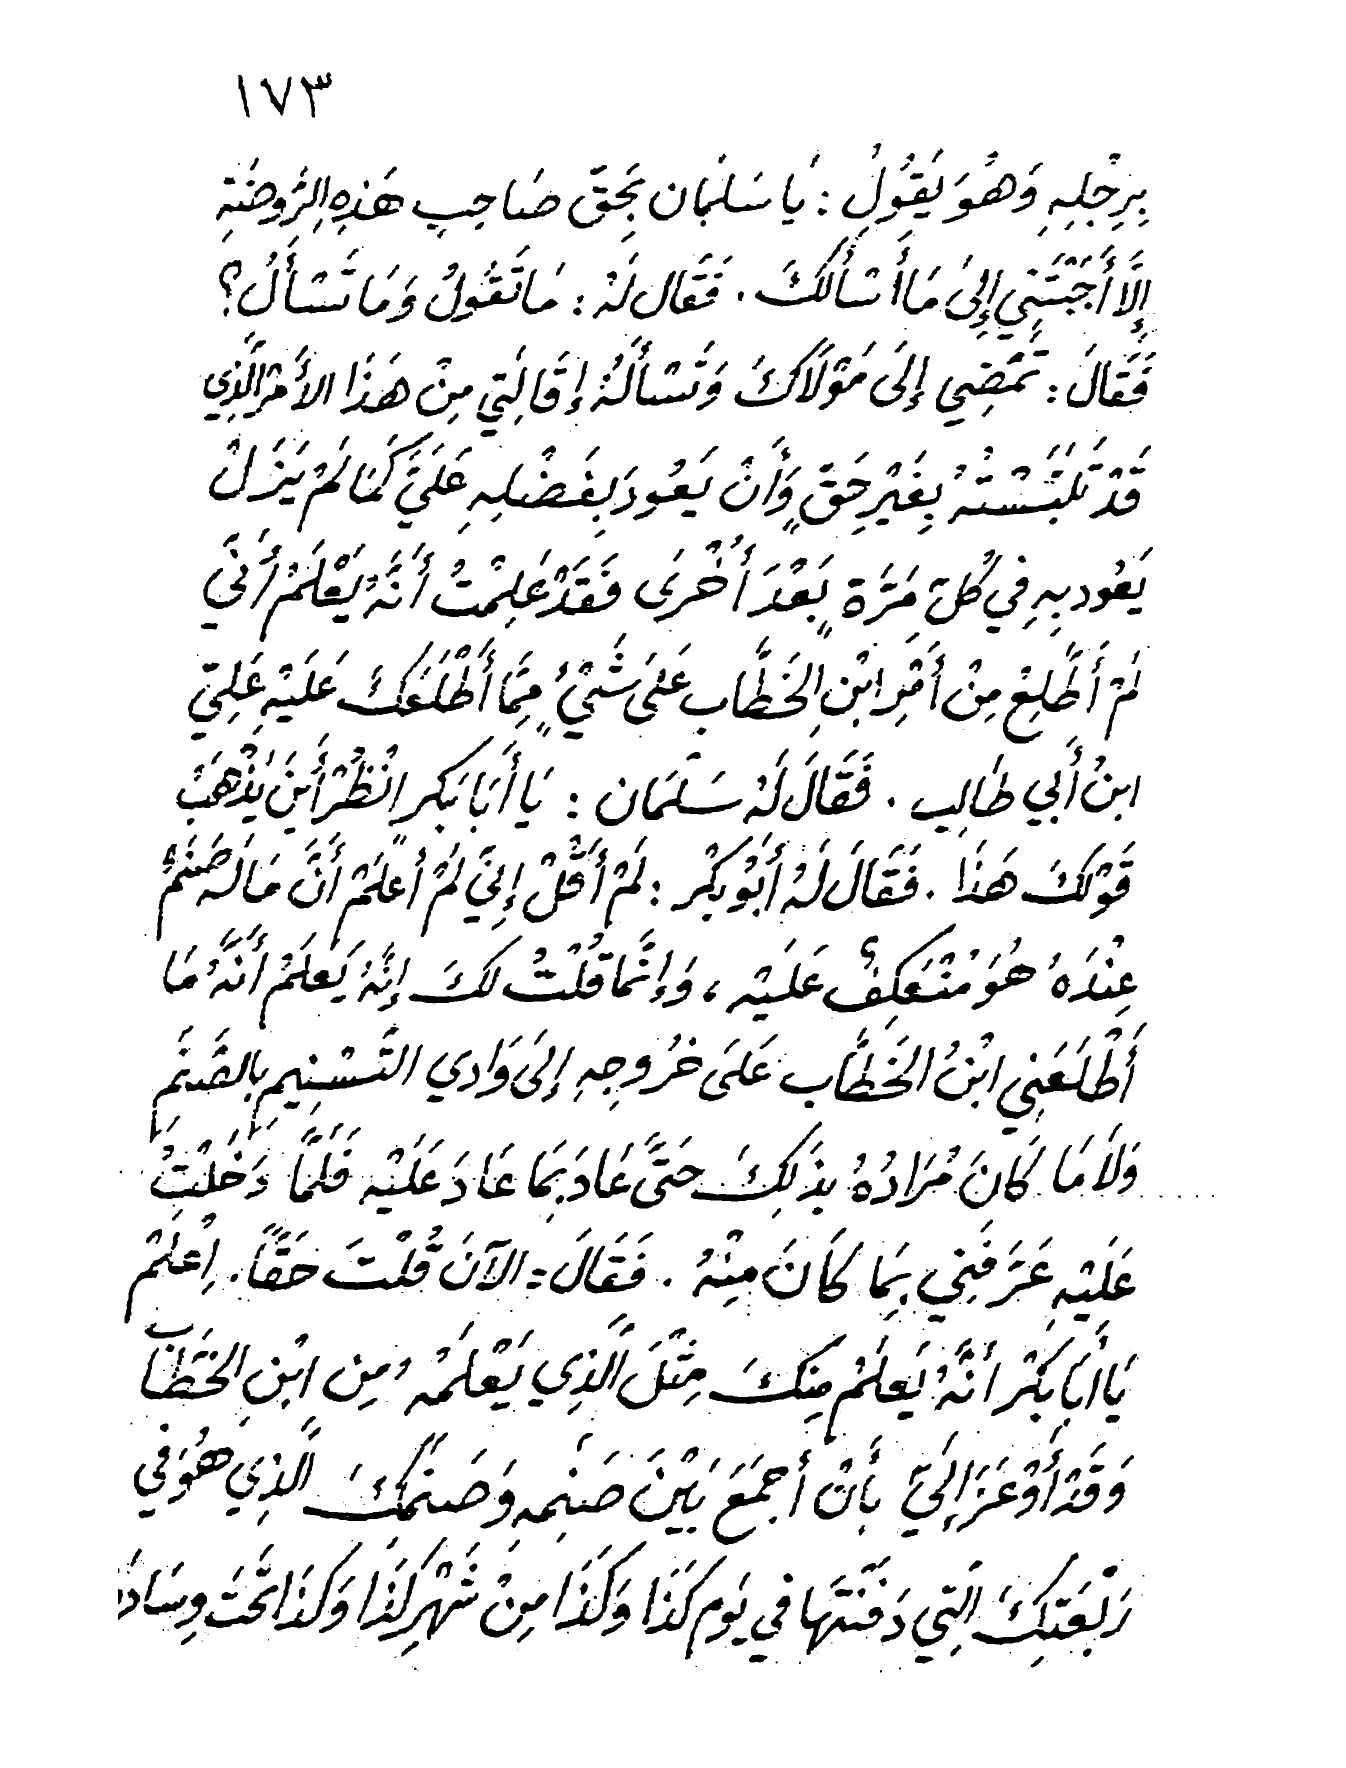 ١٧٣
بِرِجْلِهِ وَهُوَ يَقُولُ : يَا سَلْمَان بِحَقِّ صَاحِبِ هَذِهِ الرَّوْضَةِ
إِلَّا أَجَبْتَنِي إِلَى مَا أَسْأَلُكَ . فَقَالَ لَهُ : مَا تَقُولُ وَمَا تَسْأَلُ ؟
فَقَالَ : تَمْضِي إِلَى مَوْلَاكَ وَتَسْأَلُهُ إِقَالَتِي مِنْ هَذَا الأَمْرِ الَّذِي
قَدْ تَلَبَّسْتُهُ بِغَيْرِ حَقٍّ وَأَنْ يَعُودَ بِفَضْلِهِ عَلَيَّ كَمَا لَمْ يَزَلْ
يَعُود بِهِ فِي كُلِّ مَرَّةٍ بَعْدَ أُخْرَى فَقَدْ عَلِمْتُ أَنَّهُ يَعْلَمُ أَنِّي
لَمْ أَطَّلِعْ مِنْ أَمْرِ ابْنِ الخَطَّابِ عَلَى شَيْءٍ مِمَّا أَطْلَعَكَ عَلَيْهِ عَلِيّ
ابنُ أَبِي طَالِبٍ . فَقَالَ لَهُ سَلْمَان : يَا أَبَا بَكرٍ انْظُرْ أَيْنَ يَذْهَبُ
قَوْلُكَ هَذَا . فَقَالَ لَهُ أَبُو بَكْرٍ : لَمْ أَقُلْ إِنِّي لَمْ أَعلَمْ أَنَّ مَا لَهُ صَنَمٌ
عِنْدَهُ هُوَ مُنْعَكِفٌ عَلَيْهِ ، وَإِنَّمَا قُلْتُ لَكَ إِنَّهُ يَعلَمُ أَنَّهُ مَا
أَطْلَعَنِي ابْنُ الخَطَّابِ عَلَى خُرُوجِهِ إِلَى وَادِي التَّسْنِيمِ بِالصَّنَمِ
وَلَا مَا كَانَ مُرَادُهُ بِذَلِكَ حَتَّى عَادَ بِمَا عَادَ عَلَيْهِ فَلَمَّا دَخَلْتُ
عَلَيْهِ عَرَّفَنِي بِمَا كَانَ مِنْهُ . فَقَالَ : الآنَ قُلْتَ حَقًّا . اِعْلَمْ
يَا أَبَا بَكْرٍ أَنَّهُ يَعلَمُ مِنكَ مِثْلَ الَّذِي يَعْلَمُهُ مِنِ ابْنِ الخَطَّابِ
وَقَدْ أَوْعَزَ إِلَيَّ بِأَنْ أَجْمَعَ بَيْنَ صَنَمِهِ وَصَنَمِكَ الَّذِي هُوَ فِي
رَبْعَتِكَ الَّتِي دَفَنْتَهَا فِي يَوْمِ كَذَا وَكَذَا مِنْ شَهْرِ كَذَا وَكَذَا تَحْتَ وِسَادَة